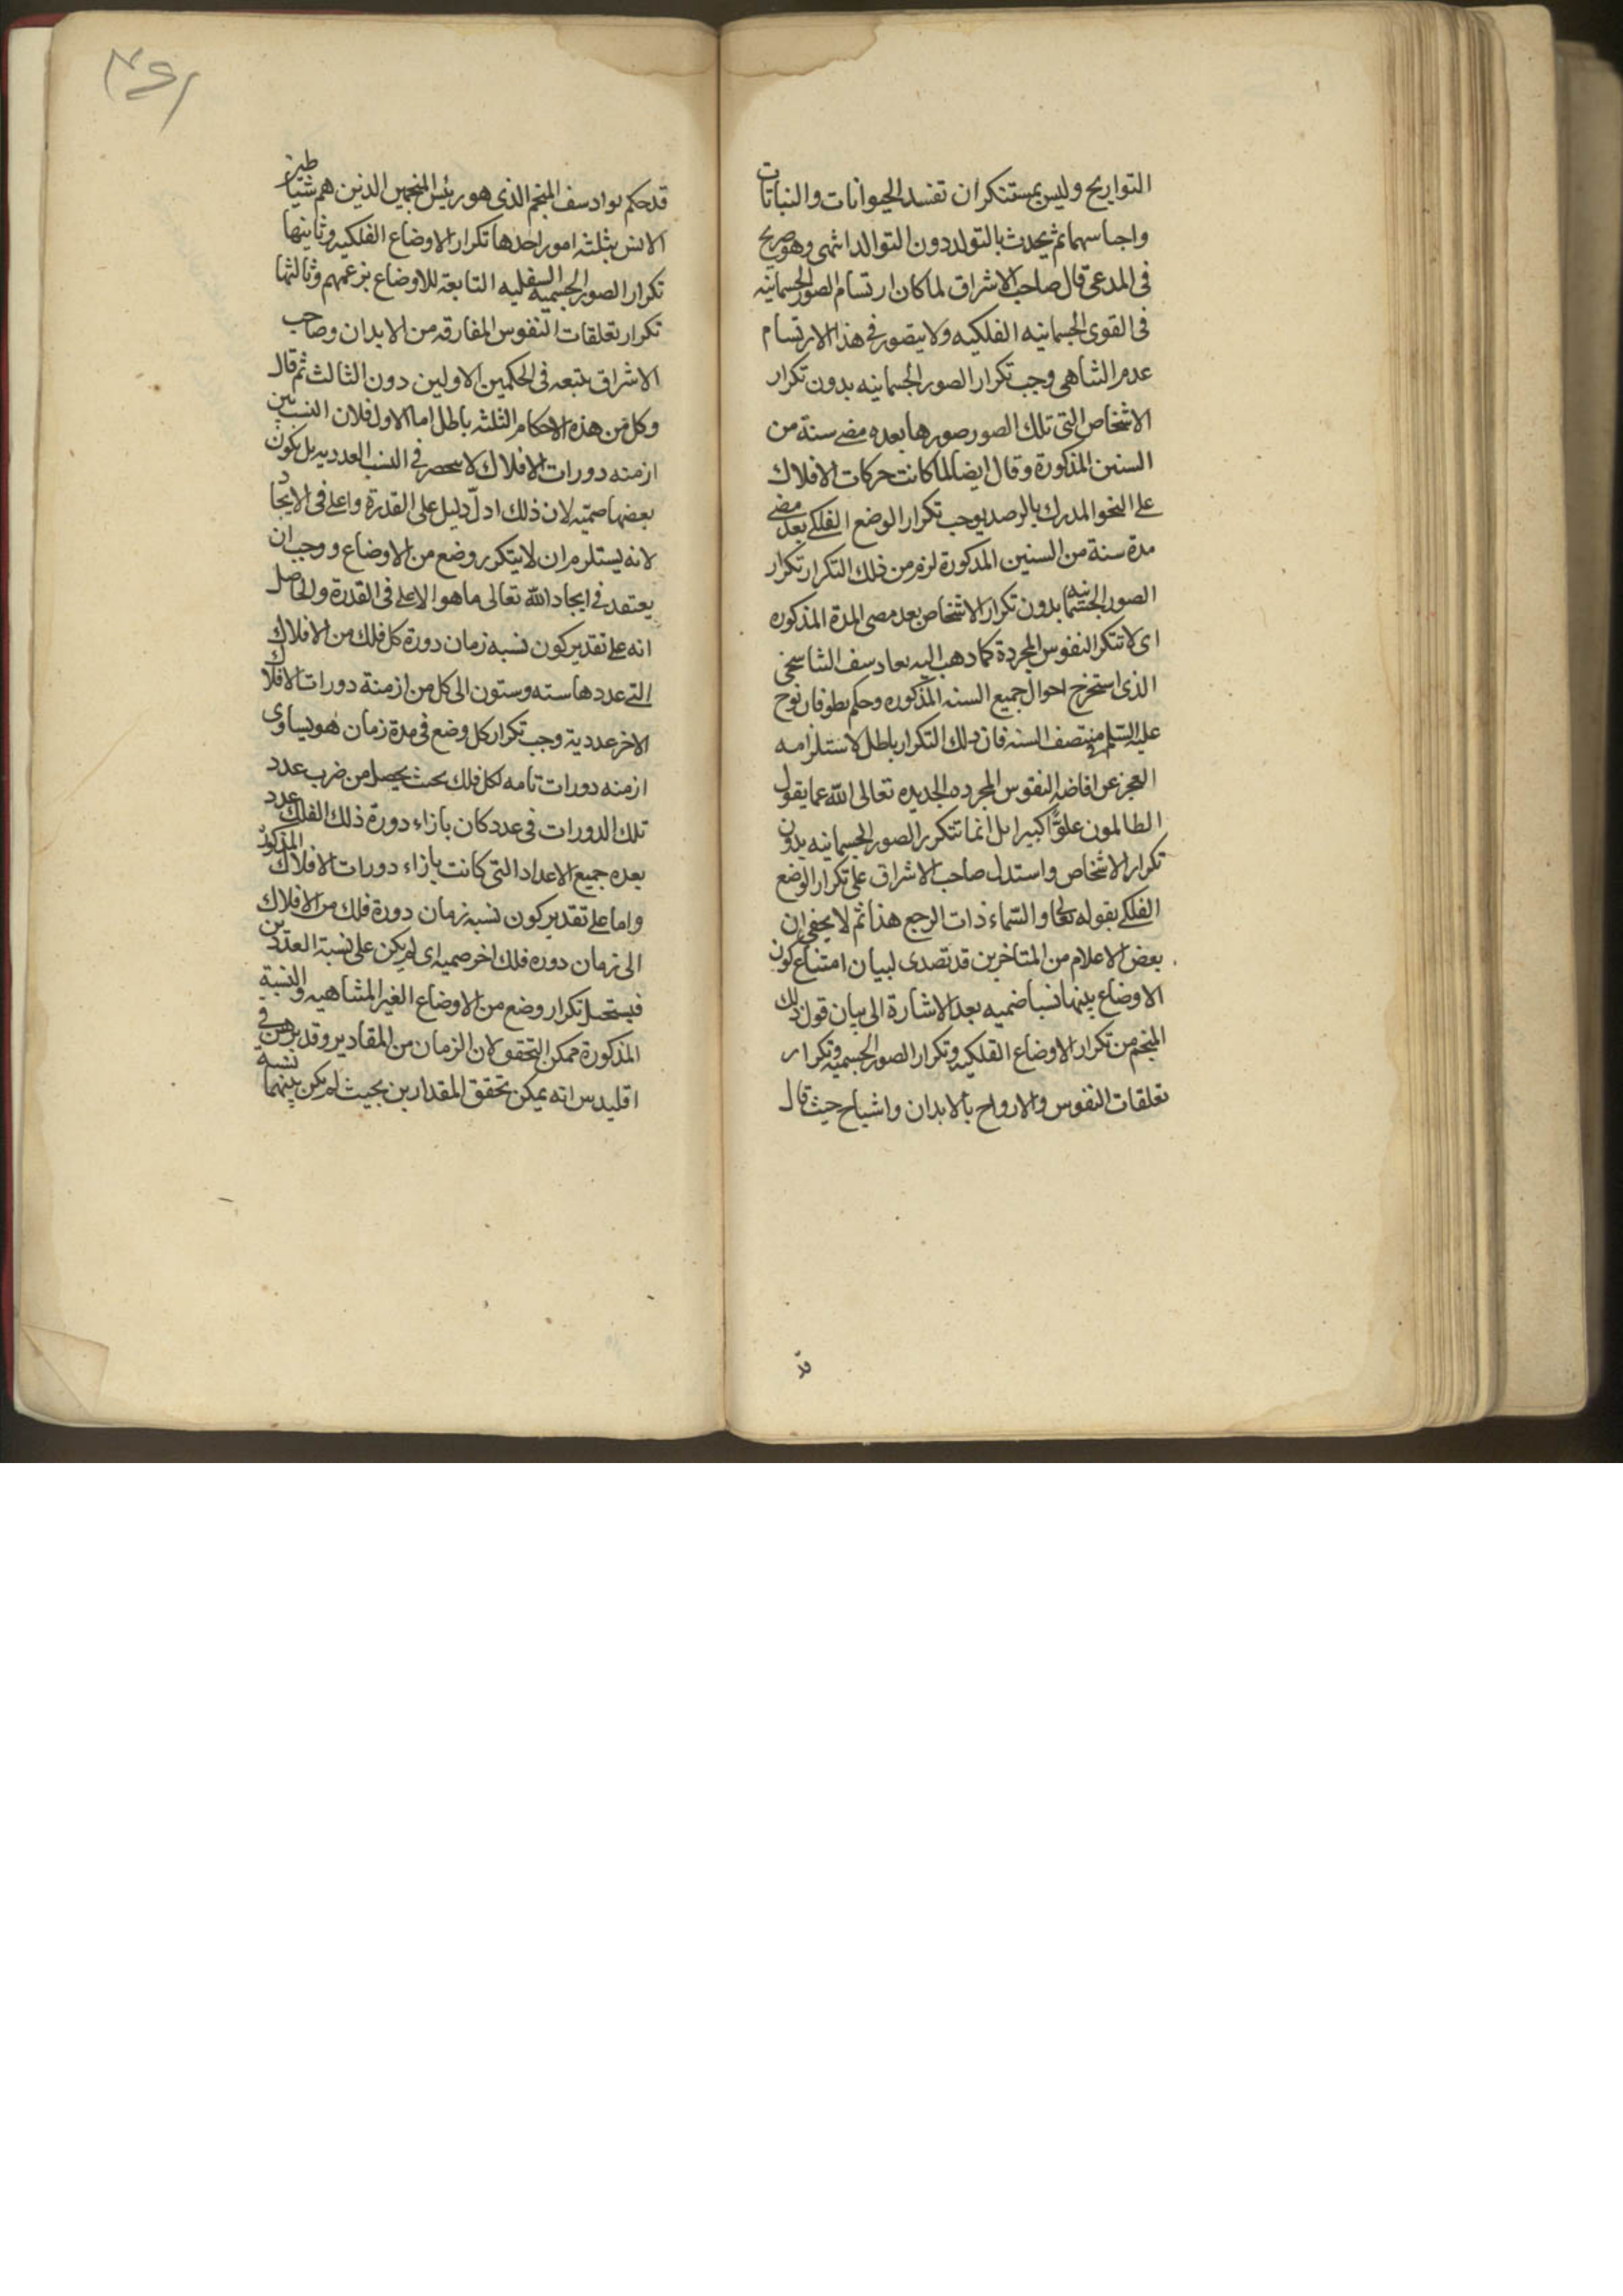 التواريخ وليس بمستنكر ان تفسد الحيوانات والنباتات
واجناسهما ثم يحدث بالتولد دون التوالد انتهى وهو صريح
فى المدعى قال صاحب الاشراق لما كان ارتسام الصور الجسمانيه
فى القوى الجسمانيه الفلكيه ولا يتصور فى هذا الارتسام
عدم التناهى وجب تكرار الصور الجسمانيه بدون تكرار
الاشخاص التى تلك الصور صورها بعده مضى سنة من
السنين المذكورة وقال ايضا لما كانت حركات الافلاك
على النحو المدرك بالرصد يوجب تكرار الوضع الفلكى بعد مضى
مدة سنة من السنين المذكورة لزم من ذلك التكرار تكرار
الصور الجسمانيه بدون تكرار الاشخاص بعد مضى المدة المذكوره
اى لا تتكرر النفوس المجردة كما ذهب اليه يعادسف التناسخى
الذى استخرج احوال جميع السنه المذكوره وحكم بطوفان نوح
عليه السلم فى منتصف السنه فان ذلك التكرار باطل لاستلزامه
العجز عن افاضه النفوس المجرده الجديده تعالى الله عما يقول
الظالمون علوًّا كبيرا بل انما تتكرر الصور الجسمانيه بدون
تكرار الاشخاص واستدل صاحب الاشراق على تكرار الوضع
الفلكى بقوله تعالى والسّماء ذات الرجع هذا ثم لا يخفى ان
بعض الاعلام من المتاخرين قد تصدى لبيان امتناع كون
الاوضاع بينها نسبا ضميه بعد الاشارة الى بيان قول ذلك
المنجم من تكرار الاوضاع الفلكيه وتكرار الصور الجسميه وتكرار
تعلقات النفوس والارواح بالابدان واشباح حيث قال
قد
قد حكم بوادسف المنجم الذى هو رئيس المنجمين الذين هم شياطين
الانس بثلثه امور احدها تكرار الاوضاع الفلكيه وثانيها
تكرار الصور الجسميه السفليه التابعة للاوضاع بزعمهم وثالثها
تكرار تعلقات النفوس المفارقه من الابدان وصاحب
الاشراق يتبعه فى الحكمين الاولين دون الثالث ثم قال
وكل من هذه الاحكام الثلثه باطل اما الاول فلان النسب بين
ازمنه دورات الافلاك لا تنحصر فى النسب العدديه بل يكون
بعضها صميّه لان ذلك ادلّ دليل على القدرة واعلى فى الايجاد
لانه يستلزم ان لا يتكرر وضع من الاوضاع ووجب ان
يعتقد فى ايجاد الله تعالى ما هو الاعلى فى القدرة والحاصل
انه على تقدير كون نسبه زمان دورة كل فلك من الافلاك
التى عددها سته وستون الى كل من ازمنة دورات الافلاك
الاخر عددية وجب تكرار كل وضع فى مدة زمان هو يساوى
ازمنه دورات تامه لكل فلك بحيث يحصل من ضرب عدد
تلك الدورات فى عدد كان بازاء دورة ذلك الفلك عدد
بعده جميع الاعداد التى كانت بازاء دورات الافلاك المذكور
واما على تقدير كون نسبه زمان دورة فلك من الافلاك
الى زمان دوره فلك اخر صميه اى لم يكن على نسبة العددين
فيستحيل تكرار وضع من الاوضاع الغير المتناهيه والنسبة
المذكورة ممكن التحقق لان الزمان من المقادير وقد برهن فى
اقليدس انه يمكن تحقق المقدارين بحيث لم يكن بينهما نسبة